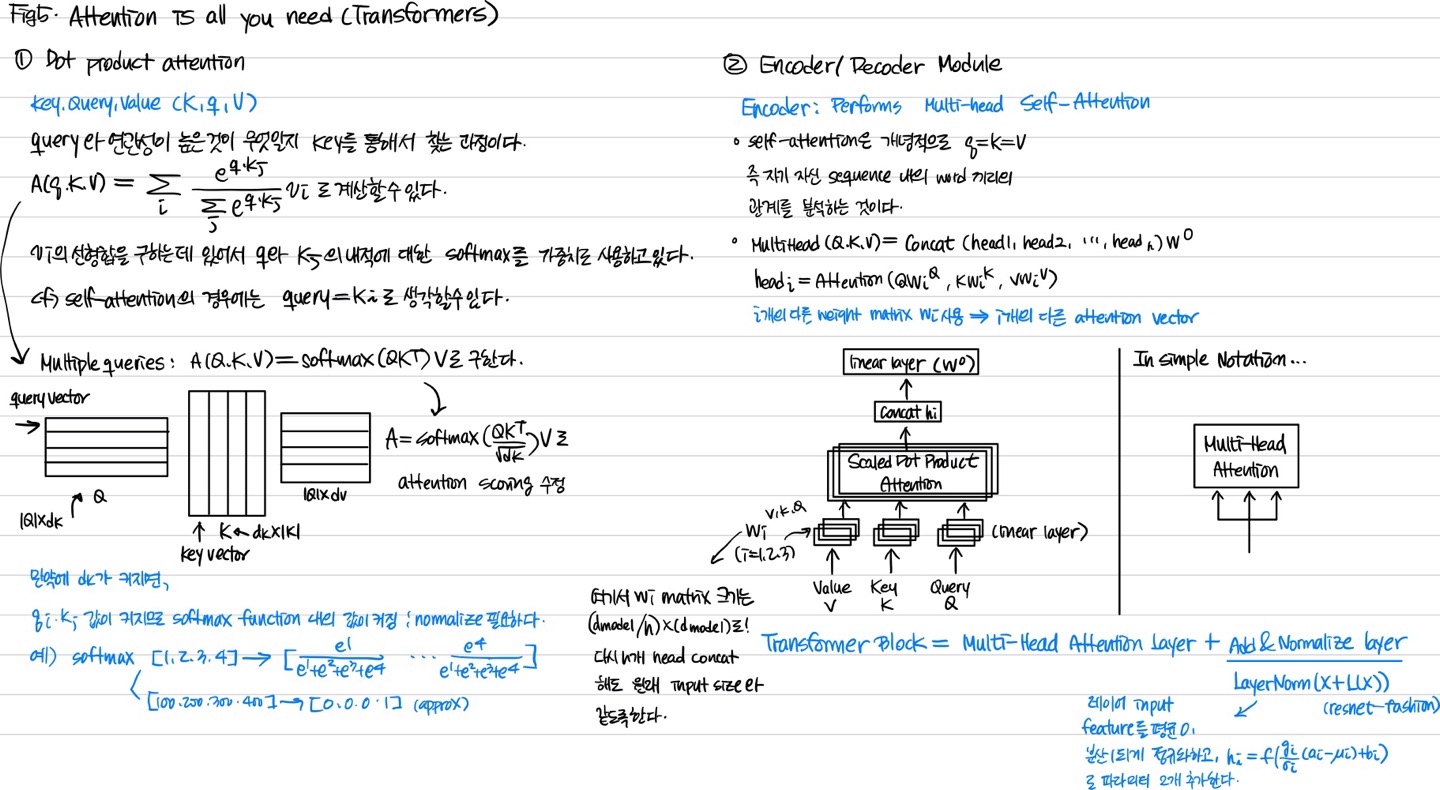 Fig5. Attention is all you need (Transformers)
① Dot product attention
Key, Query, Value (K, q, V)
query와 연관성이 높은 것이 무엇일지 key를 통해서 찾는 과정이다.
A(q.K.V) = ∑_i e^{q·k_j} / ∑_j e^{q·k_j} v_i 로 계산할 수 있다.
v_i의 선형합을 구하는데 있어서 q와 K_j의 내적에 대한 softmax를 가중치로 사용하고 있다.
cf) self-attention의 경우에는 query = K_i로 생각할 수 있다.
Multiple queries: A(Q.K.V) = softmax(QK^T)V로 구한다.
query vector
Q
|Q|×dk
K ← dk×|K|
key vector
|Q|×dv
A = softmax(QK^T/√dk)V로
attention scoring 수정
만약에 dk가 커지면,
q_i·K_j 값이 커지므로 softmax function 내의 값이 커짐; normalize 필요하다.
예) softmax [1.2.3.4] → [e^1/(e^1+e^2+e^3+e^4) ... e^4/(e^1+e^2+e^3+e^4)]
[100.200.300.400] → [0.0.0.1] (approx)
② Encoder/Decoder Module
Encoder: Performs Multi-head Self-Attention
∘ self-attention은 개념적으로 q=K=V
즉 자기 자신 sequence 내의 word 끼리의
관계를 분석하는 것이다.
∘ MultiHead(Q.K.V) = Concat(head1, head2, ..., head_h)W^O
head_i = Attention(QW_i^Q, KW_i^K, VW_i^V)
i개의 다른 weight matrix Wi 사용 ⇒ i개의 다른 attention vector
linear layer (W^O)
Concat hi
Scaled Dot Product
Attention
Wi^{V.K.Q}
(i=1.2.3)
(linear layer)
Value
V
Key
K
Query
Q
여기서 Wi matrix 크기는
(dmodel/h)×(dmodel)로!
다시 h개 head concat
해도 원래 input size와
같도록한다.
In simple Notation...
Multi-Head
Attention
Transformer Block = Multi-Head Attention Layer + Add & Normalize layer
LayerNorm(X+L(X))
(resnet-fashion)
레이어 input
feature를 평균 0,
분산 1되게 정규화하고, h_i = f(g_i/σ_i (a_i-μ_i)+b_i)
로 파라미터 2개 추가한다.